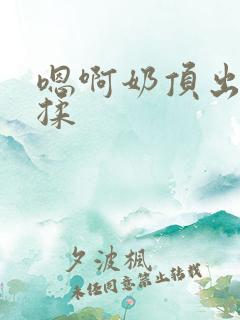 嗯啊奶頂出
揉
夕波楓
未经同意禁止转载